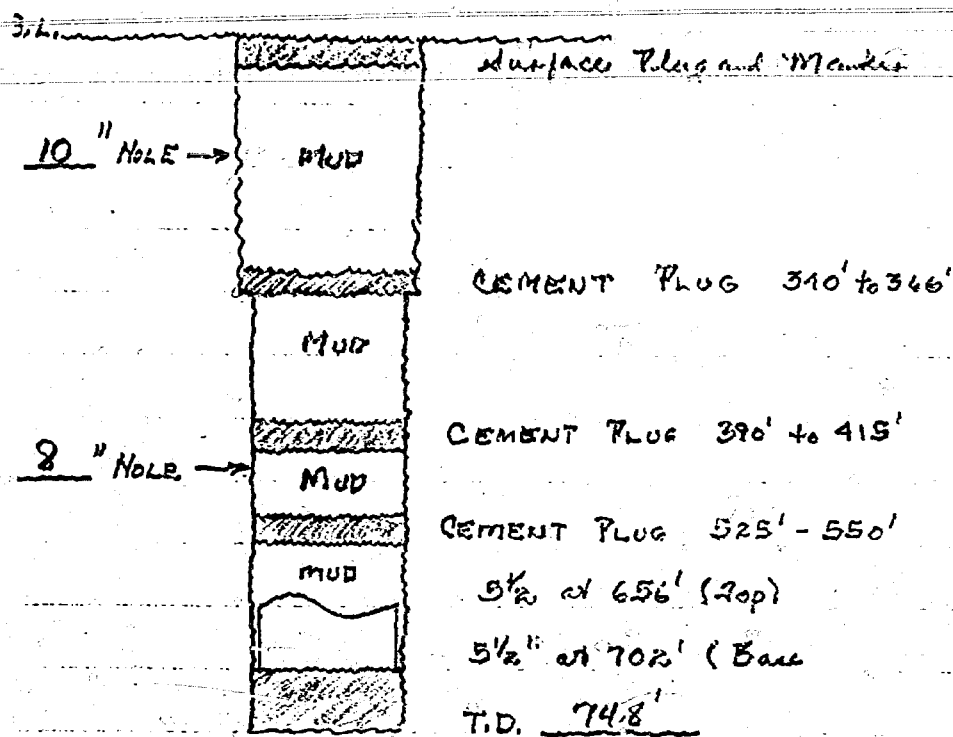 Surface Plug and Marker
10 " HOLE → MUD
CEMENT PLUG 340' to 346'
MUD
CEMENT PLUG 390' to 415'
8 " HOLE → MUD
CEMENT PLUG 525' - 550'
MUD
5½ at 656' (Top)
5½" at 702' (Base
T.D. 748'